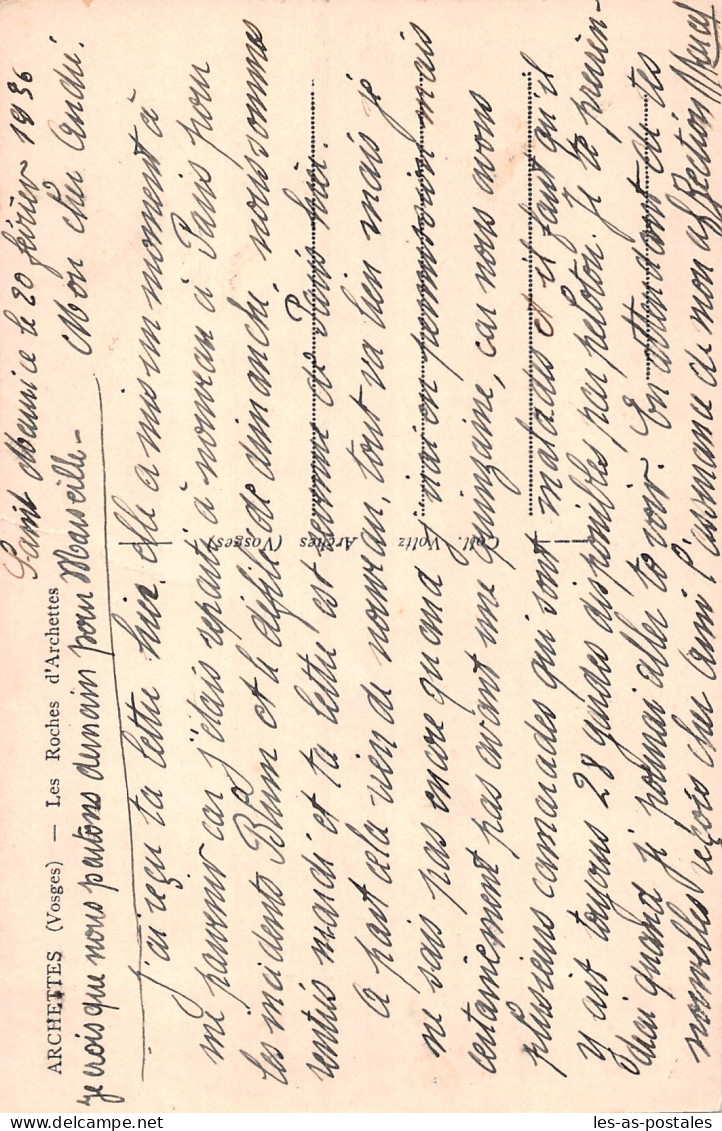 Saint Maurice le 20 février 1936
ARCHETTES (Vosges) — Les Roches d'Archettes
je crois que nous partons demain pour Marseille -
Mon cher André.
J'ai reçu ta lettre hier, elle a mis un moment à
me parvenir car j'étais reparti à nouveau à Paris pour
les incidents Blum et le défilé de dimanche, nous sommes
rentrés mardi et ta lettre est venue de Paris hier.
A part cela rien de nouveau, tout va bien mais je
ne sais pas encore quand j'irai en permission mais
certainement pas avant une quinzaine, car nous avons
plusieurs camarades qui sont malades et il faut qu'il
y ait toujours 28 gardes disponibles par peloton. Je te prévien-
drai quand je pourrai aller te voir. En attendant de tes
nouvelles reçois cher ami l'assurance de mon affection
Coll. Voltz Arches (Vosges)
les-as-postales